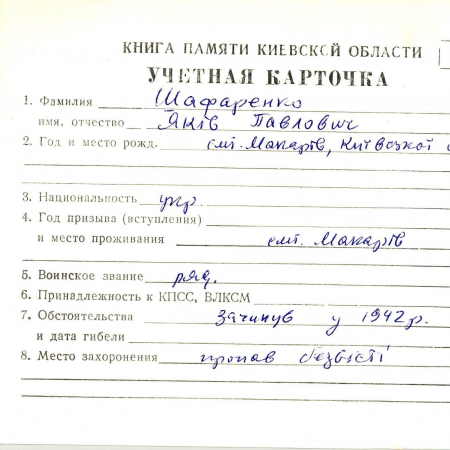 КНИГА ПАМЯТИ КИЕВСКОЙ ОБЛАСТИ
УЧЕТНАЯ КАРТОЧКА
1. Фамилия Шафаренко
имя, отчество Яків Павлович
2. Год и место рожд. смт. Макарів, Київської
3. Национальность укр.
4. Год призыва (вступления)
и место проживания смт. Макарів
5. Воинское звание ряд.
6. Принадлежность к КПСС, ВЛКСМ
7. Обстоятельства загинув у 1942 р.
и дата гибели
8. Место захоронения пропав безвісті